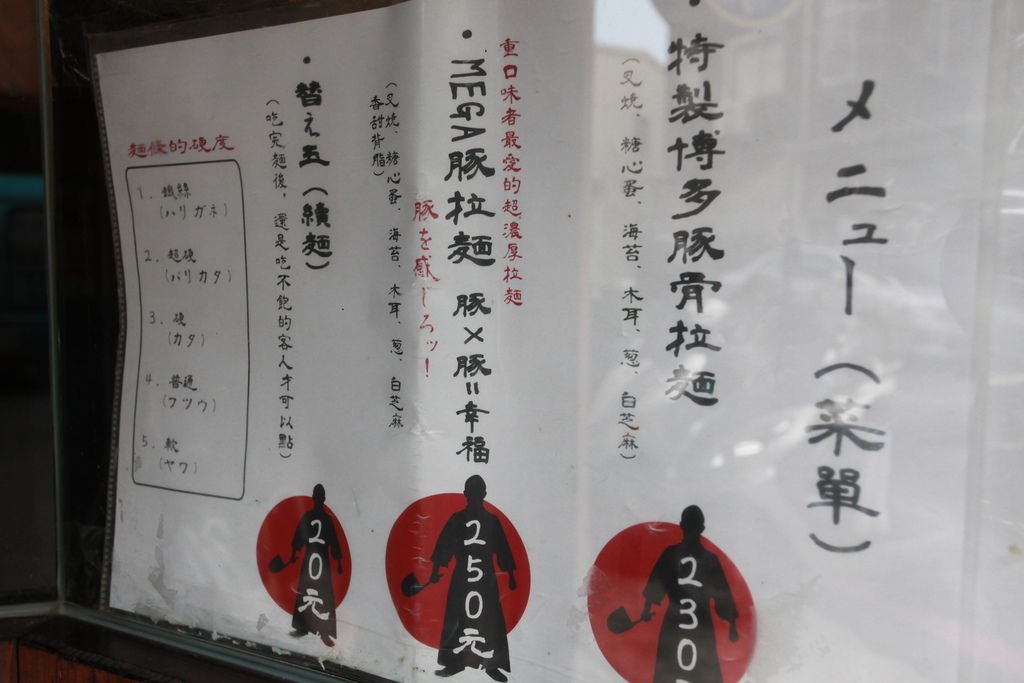 メニュー(菜單)
・特製博多豚骨拉麺
(叉燒、糖心蛋、海苔、木耳、葱、白芝麻)
230
重口味者最愛的超濃厚拉麺
・MEGA豚拉麺 豚×豚=幸福
豚を感じろッ!
(叉燒、糖心蛋、海苔、木耳、葱、白芝麻
香甜背脂)
250元
・替え玉(續麺)
(吃完麵後,還是吃不飽的客人才可以點)
20元
麺條的硬度
1. 鐵絲
(ハリガネ)
2. 超硬
(バリカタ)
3. 硬
(カタ)
4. 普通
(フツウ)
5. 軟
(ヤワ)